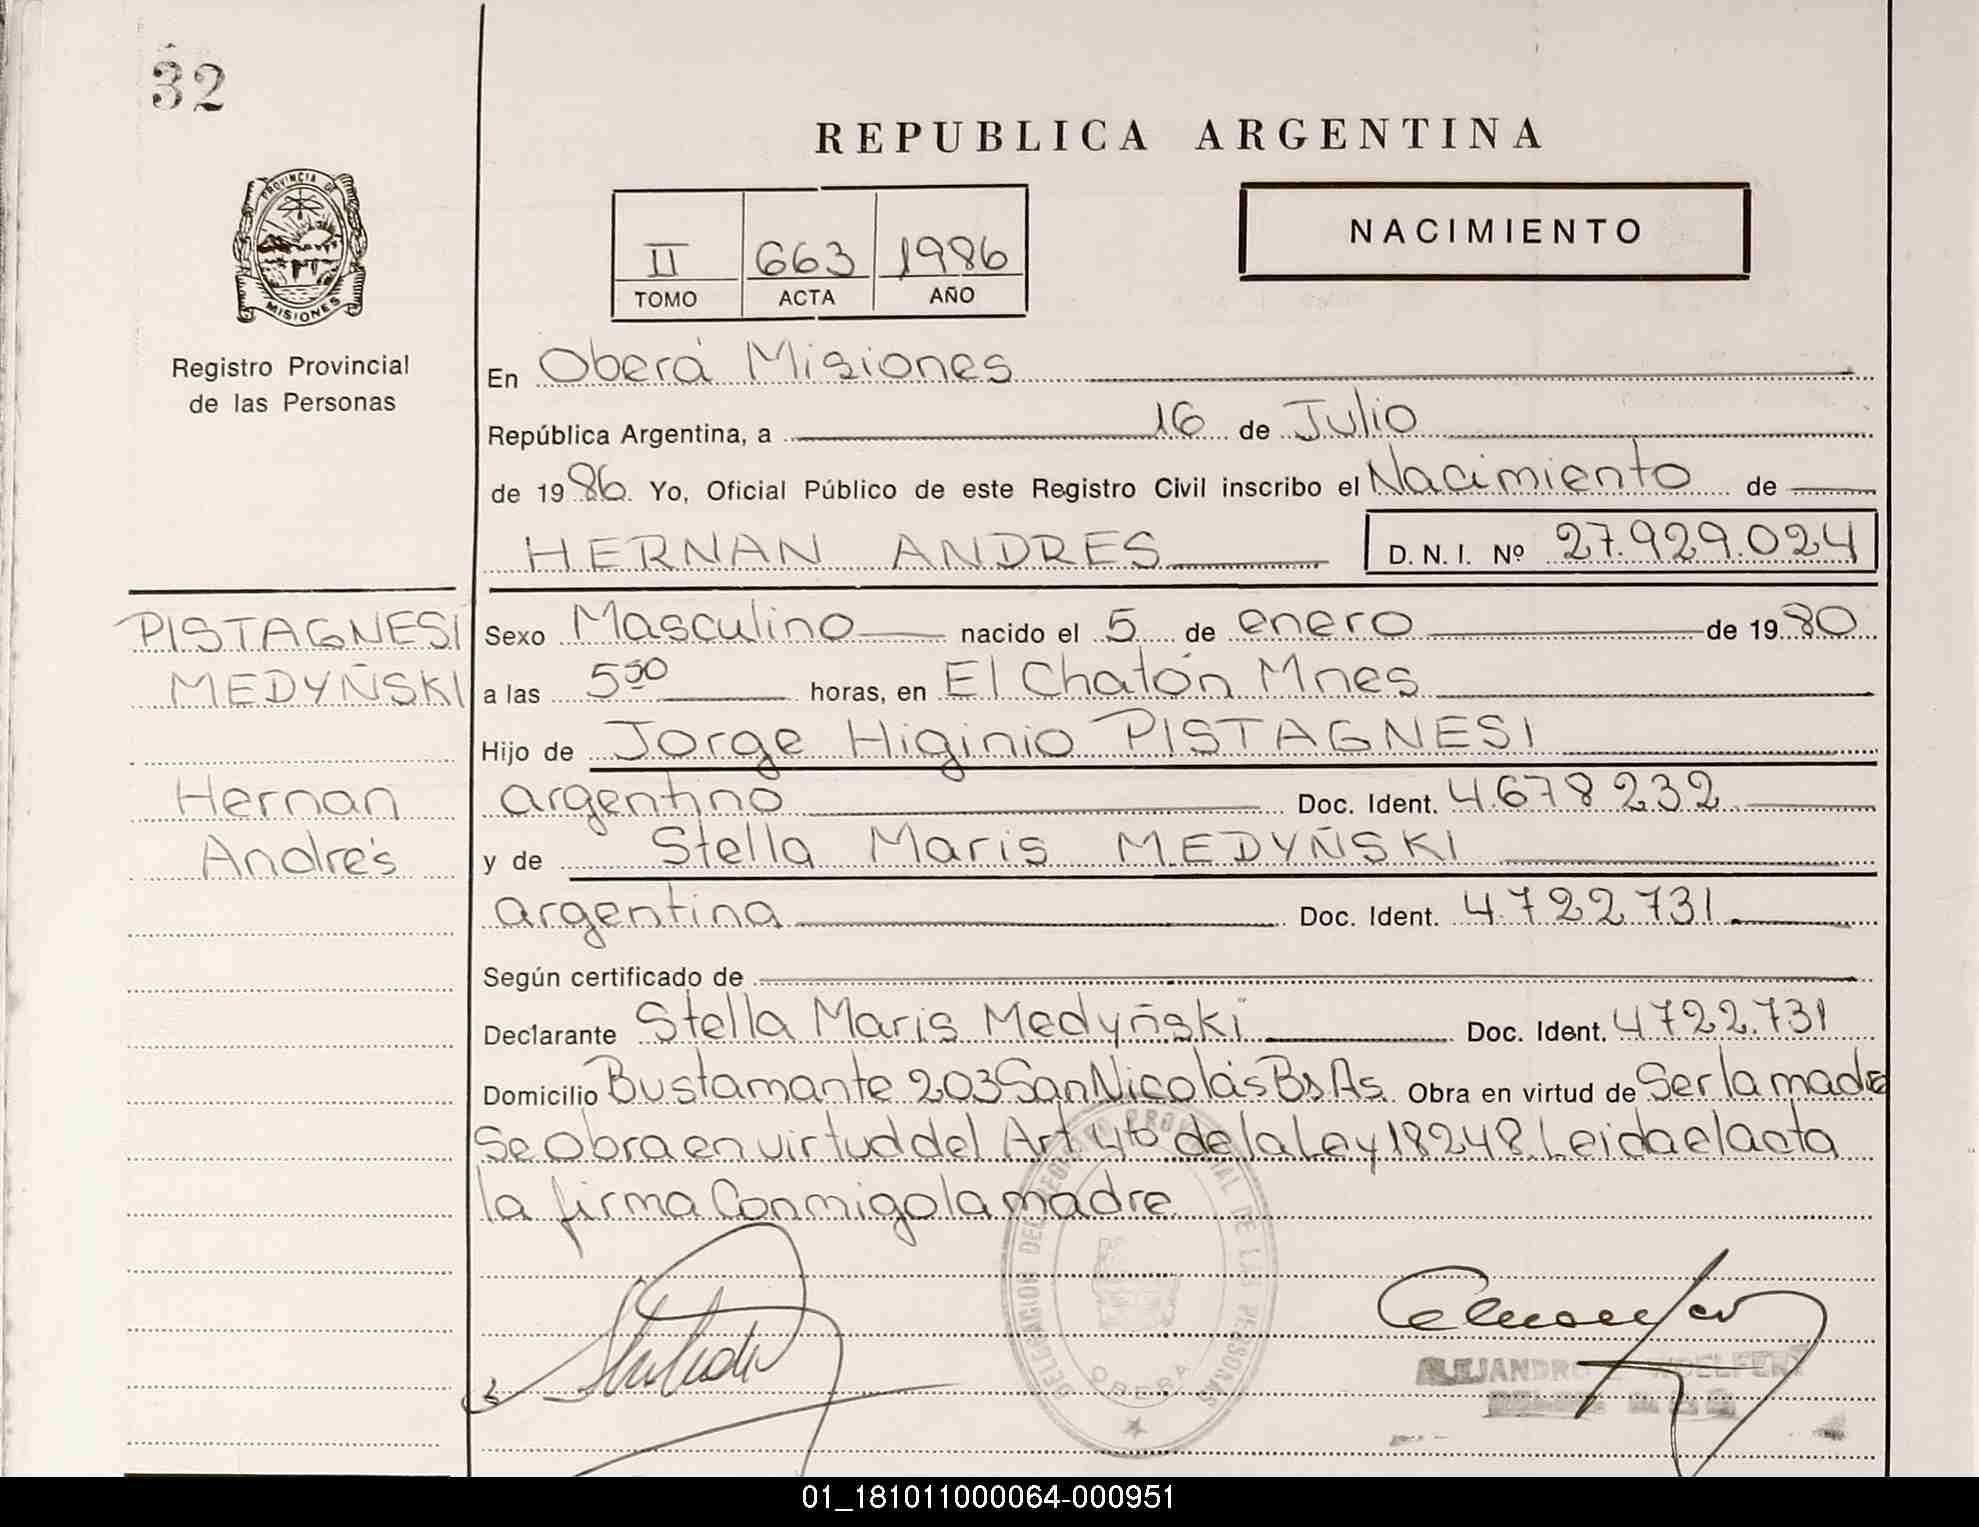 32
REPUBLICA ARGENTINA
PROVINCIA DE
MISIONES
Registro Provincial
de las Personas
II 663 1986
TOMO ACTA AÑO
NACIMIENTO
En Oberá Misiones
República Argentina, a 16 de Julio
de 1986. Yo, Oficial Público de este Registro Civil inscribo el Nacimiento de
HERNAN ANDRES D.N.I. Nº 27.929.024
PISTAGNESI
MEDYÑSKI
Hernan
Andrés
Sexo Masculino nacido el 5 de enero de 1980
a las 5 horas, en El Chatón Mnes
Hijo de Jorge Higinio PISTAGNESI
argentino Doc. Ident. 4.678.232
y de Stella Maris MEDYÑSKI
argentina Doc. Ident. 4.722.731.
Según certificado de
Declarante Stella Maris Medyñski Doc. Ident. 4722.731
Domicilio Bustamante 203 San Nicolás Bs As. Obra en virtud de Ser la madre
Se obra en virtud del Art 4to de la Ley 18248. Leida el acta
la firma Conmigo la madre
DELEGACION DEL REGISTRO PROVINCIAL DE LAS PERSONAS
OBERA
ALEJANDRO
01_181011000064-000951